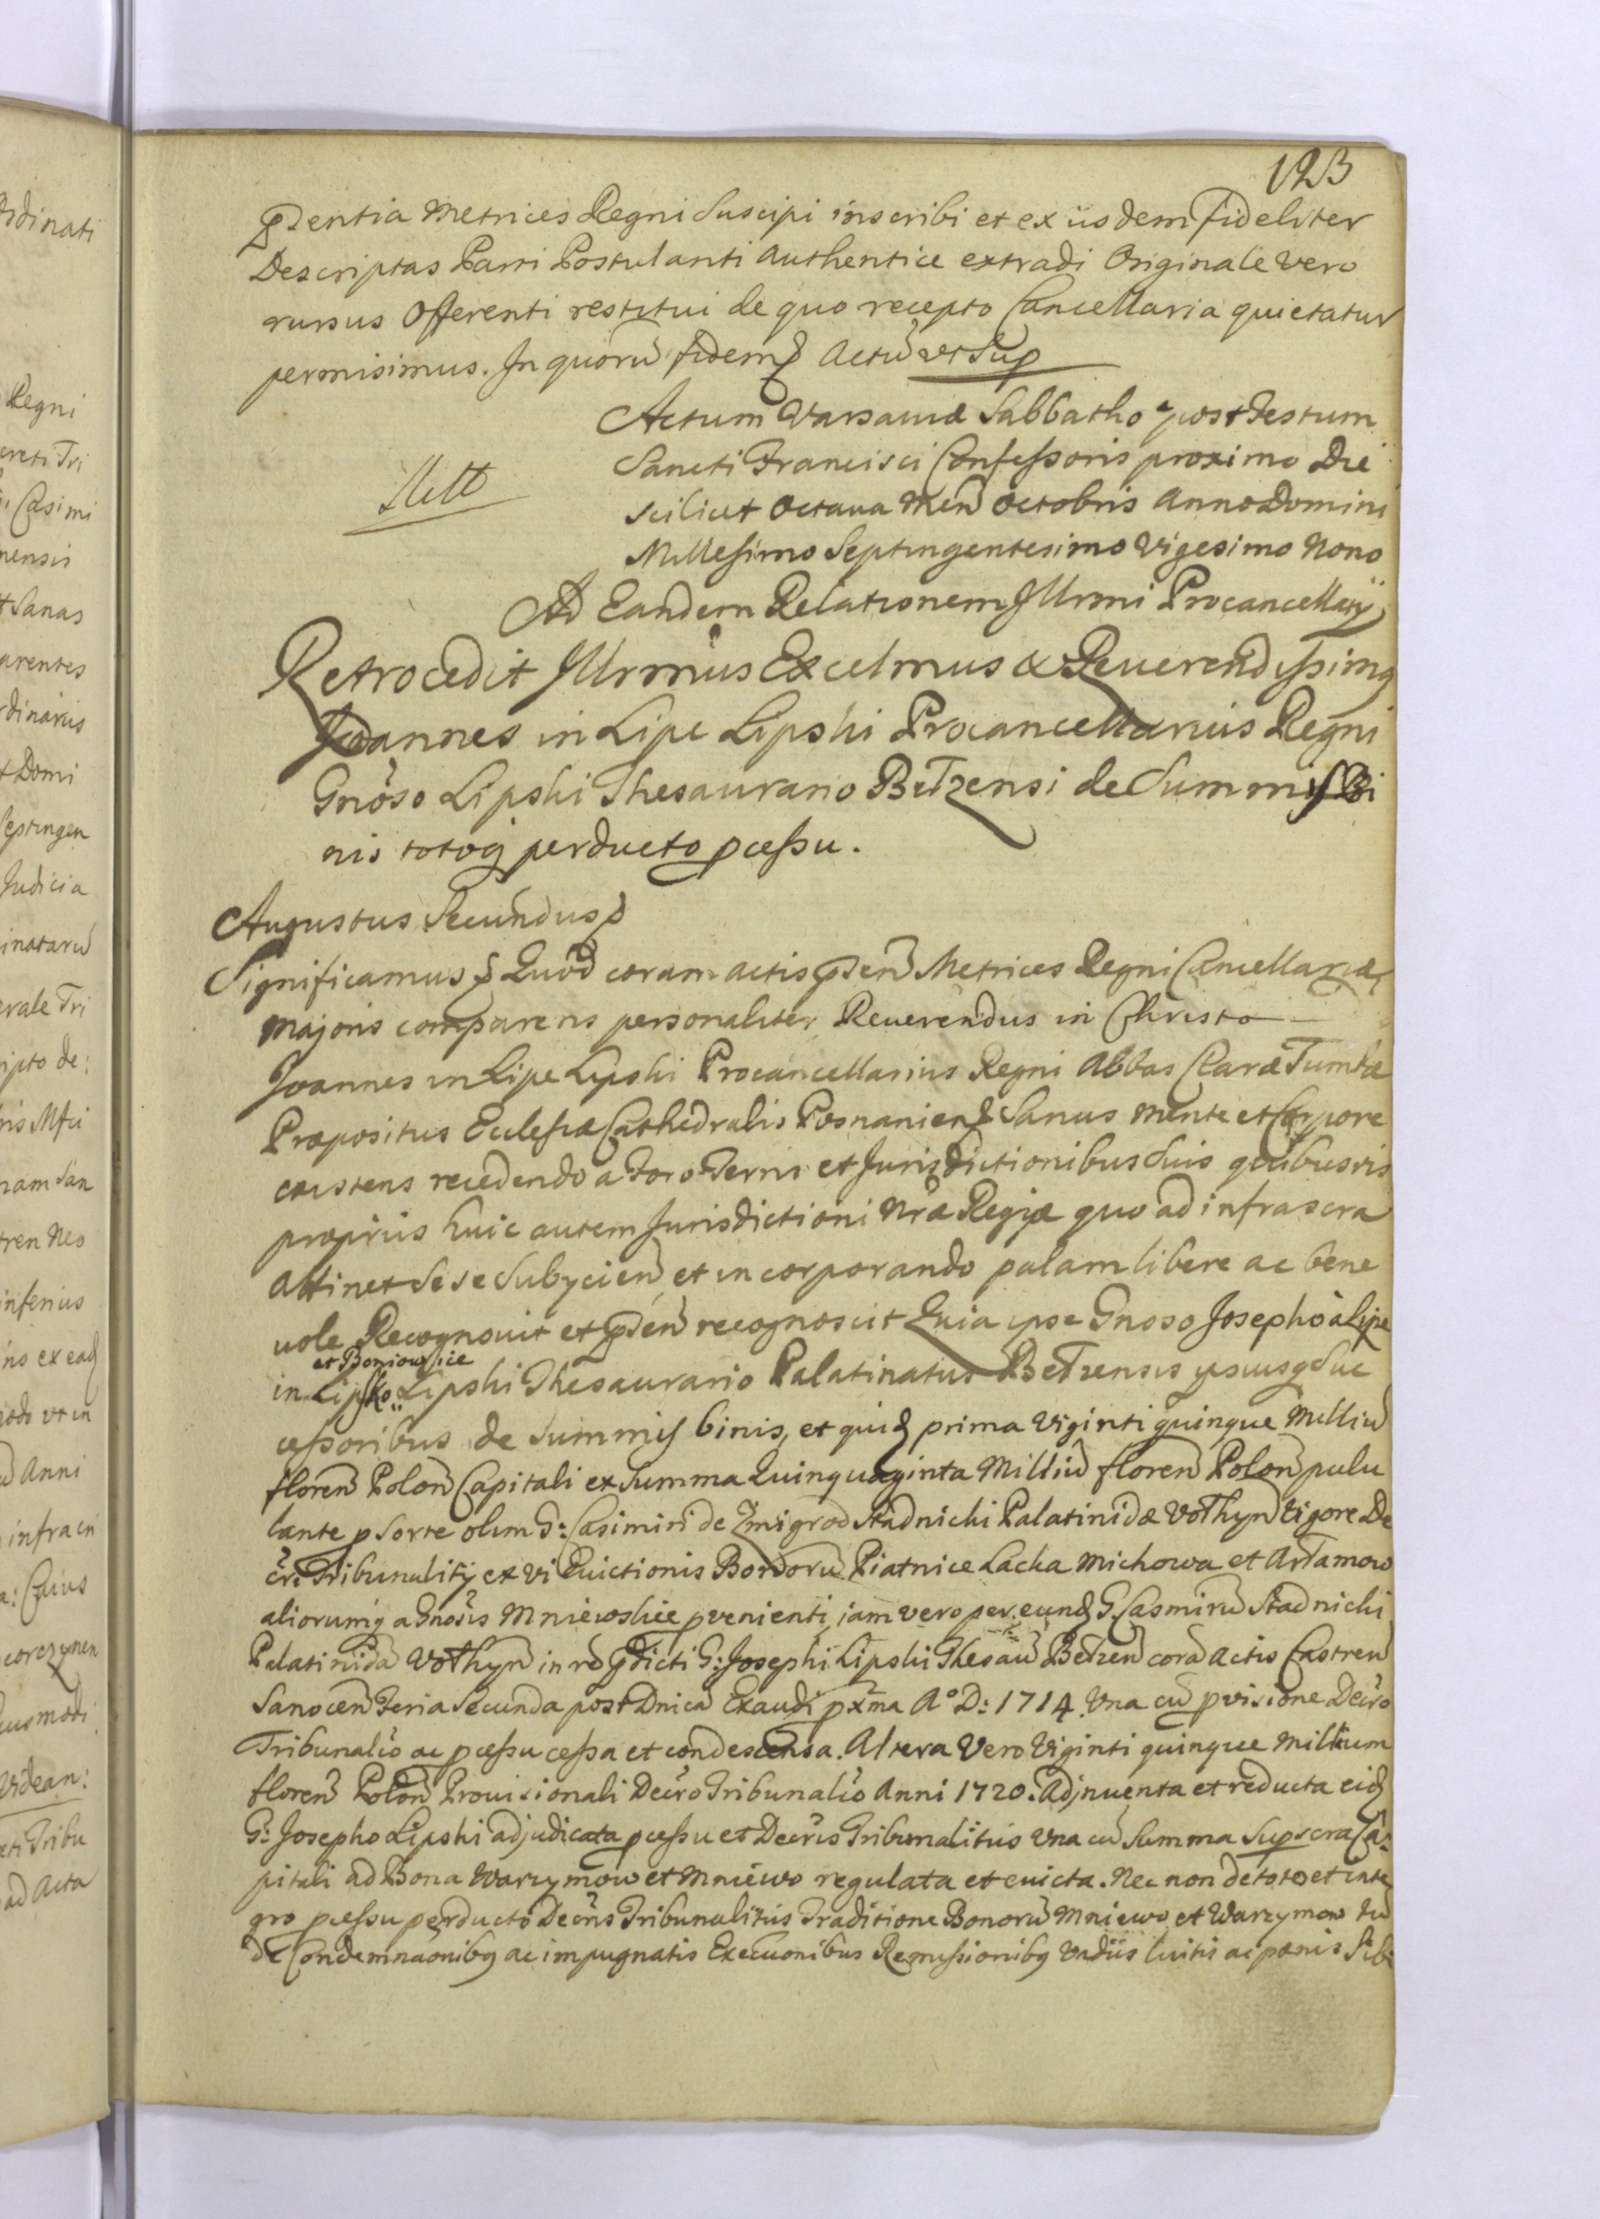 123
pdentia Metrices Regni Suscipi inscribi et ex iisdem fideliter
Descriptas Parti Postulanti Authentice extradi Originale vero
rursus Offerenti restitui de quo recepto Cancellaria quietatur
permisimus. In quorũ fidem Actũ ut Sup
Actum Varsaviæ Sabbatho post Festum
Sancti Francisci Confessoris proximo Die
scilicet Octava Men̄ Octobris Anno Domini
Millesimo Septingentesimo Vigesimo Nono
Ad Eandem Relationem Illrmi Procancellarij
Retrocedit Illrmus Excelmus & Reverendissimq
Joannes in Lipe Lipski Procancellarius Regni
Gnoso Lipski Thesaurario Bełzensi de Summis Bi
nis totoq perducto pcessu.
Augustus Secundus
Significamus Quod coram actis pden̄ Metrices Regni Cancellariæ
Majoris comparens personaliter Reverendus in Christo
Joannes in Lipe Lipski Procancellarius Regni Abbas Claræ Tumbæ
Præpositus Ecclesiæ Cathedralis Posnanien Sanus mente et Corpore
existens recedendo a Foro Terris et Jurisdictionibus Suis quibusvis
propriis huic autem Jurisdictioni Nræ Regiæ quo ad infrascra
attinet Se se Subycien̄ et incorporando palam libere ac bene
vole Recognovit et pden̄ recognoscit Quia ipse Gnoso Josepho à Lipe
et Boniowice
in Lipsko Lipski Thesaurario Palatinatus Bełzensis ipsiusq Suc
cessoribus de Summis binis, et quid prima Viginti quinque Milliũ
floren̄ Polon̄ Capitali ex Summa Quinquaginta Milliũ floren̄ Polon̄ pulu
lante p Sorte olim G: Casimiri de Zmigrod Stadnicki Palatinidæ Wołhyn̄ Vigore De
cri Tribunality ex vi Evictionis Bonorũ Piatnice Lacka Michowa et Artamow
aliorumq a Gnosis Mniewskie pvenienti, iam vero per eund G. Casmirũ Stadnicki
Palatinida Wołhyn̄ in rẽ pdicti G: Josephi Lipski Thesau Bełzen̄ corã Actis Castren̄
Sanocen̄ Feria Secunda post Dnicã Exaudi pxma Aº D: 1714. Una cũ pvisione Decro
Tribunalio ac pcessu cessa et condescensa. Altera Vero Viginti quinque Millium
floren̄ Polon̄ Provisionali Decro Tribunalio Anni 1720. Adjnventa et reducta eid
G: Josepho Lipski adjudicata pcessu et Decris Tribunalitiis Una cũ Summa Supscra Ca:
pitali ad Bona Warzymow et Mniewo regulata et evicta. Nec non de toto et inte
gro pcessu perducto Decris Tribunalitiis Traditione Bonorũ Mniewo et Warzymow tũ
de Condemnaonibq ac impugnatis Execuonibus Remissionibq Vadiis luitis ac pænis Sibi